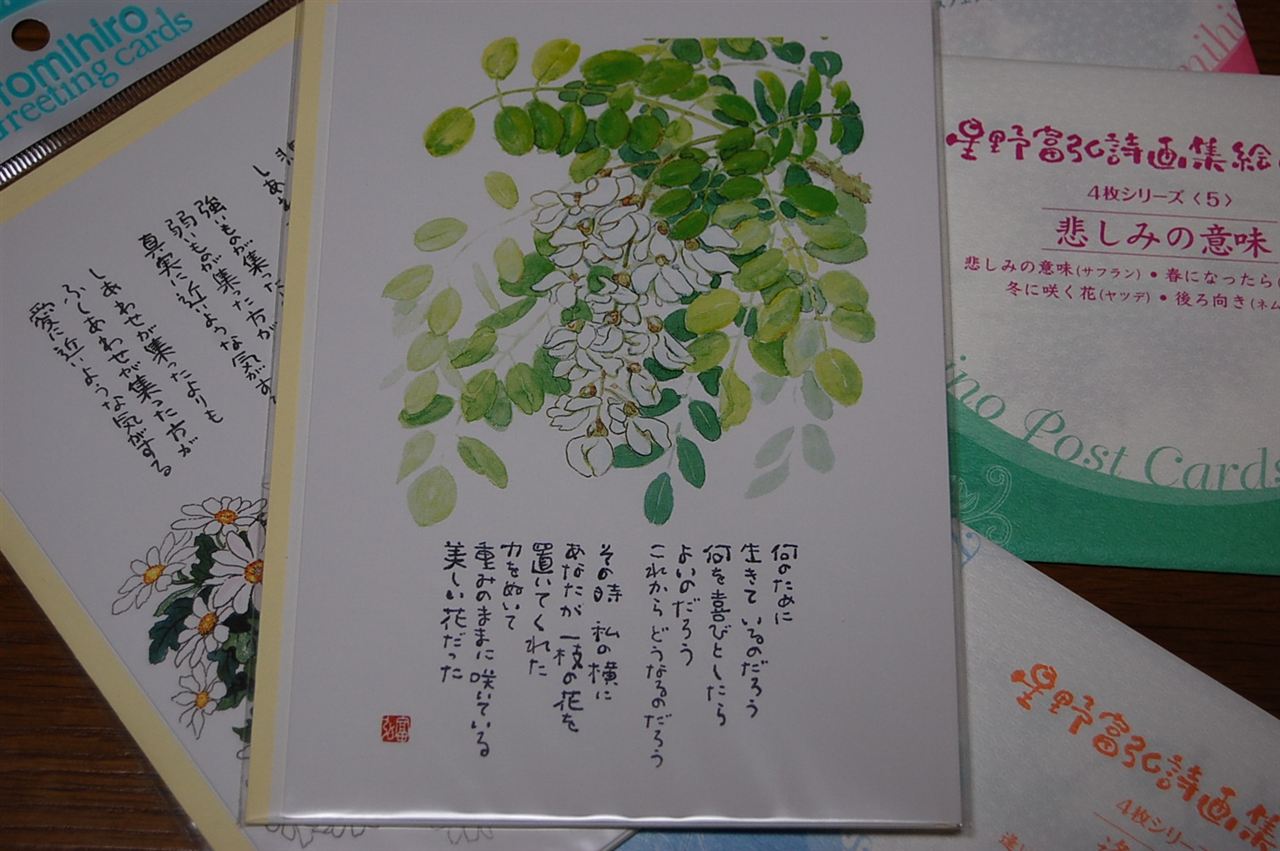 何のために
生きているのだろう
何を喜びとしたら
よいのだろう
これからどうなるのだろう
その時 私の横に
あなたが一枝の花を
置いてくれた
力をぬいて
重みのままに咲いている
美しい花だった
富弘
omihiro
Greeting cards
しあ
強いものが集った方が
弱いものが集った方が
真実に近いような気がす
しあわせが集ったよりも
ふしあわせが集った方が
愛に近いような気がする
星野富弘詩画集絵
4枚シリーズ〈5〉
悲しみの意味
悲しみの意味(サフラン)•春になったら
冬に咲く花(ヤツデ)•後ろ向き(ネム
ino Post Cards
星野富弘詩画集
4枚シリー